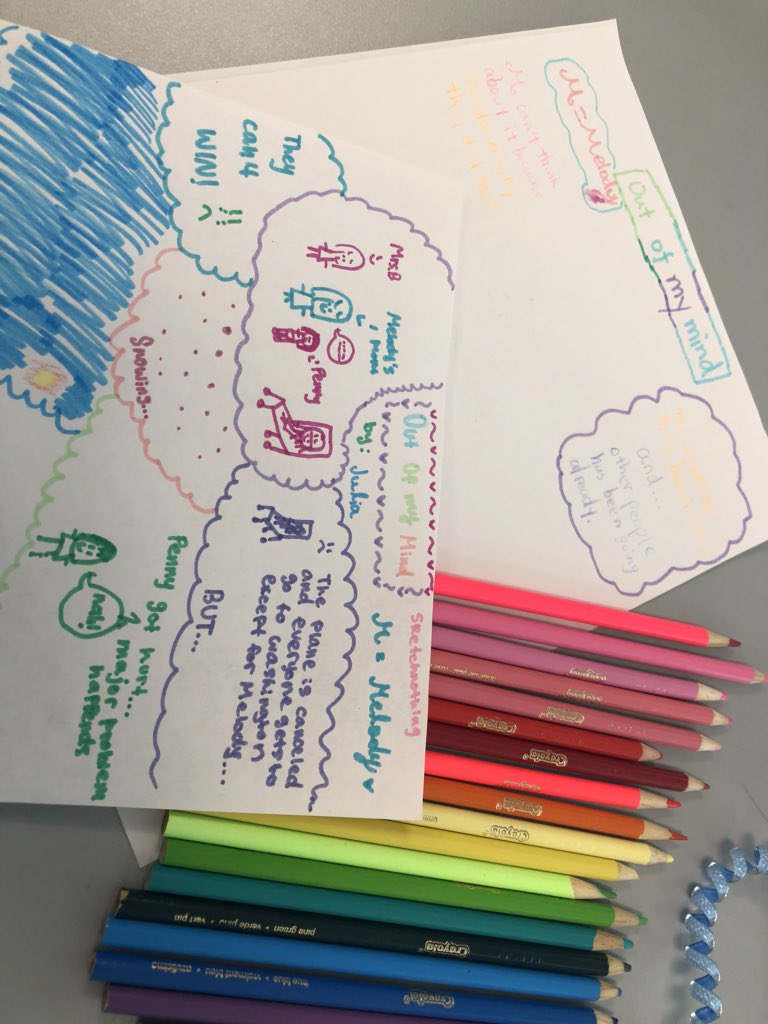 Out of my Mind
by: Julia
Sketchnothing
M = Melody
Mrs.B
Melody's Mom
Penny
They
can 4
WIN!
Snowing...
The plane is canceled
and everyone gets to
go to Washington
except for Melody...
BUT...
Penny got hurt...
A major problem
happends
M = Melody
Out of my mind
M can't think
about it
and...
other people
has been going
already.
Crayola
Crayola
Crayola
Crayola
Crayola
Crayola
pine green • verde pino • vert pin
Crayola
true blue • vraiment bleu •
Crayola